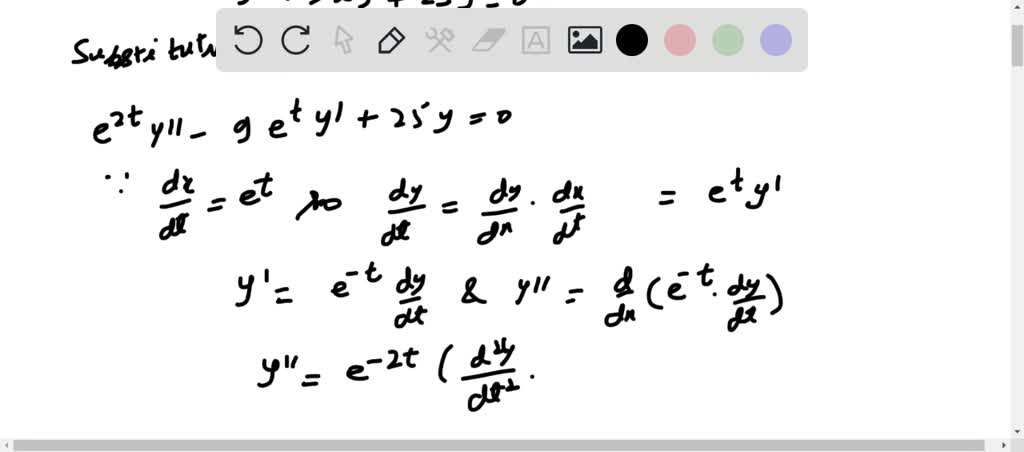 Substitut
e^{2t} y'' - 9 e^t y' + 25 y = 0
∵ dx/dt = e^t so dy/dt = dy/dx · dx/dt = e^t y'
y' = e^{-t} dy/dt & y'' = d/dx (e^{-t} · dy/dt)
y'' = e^{-2t} ( d²y/dt² ·